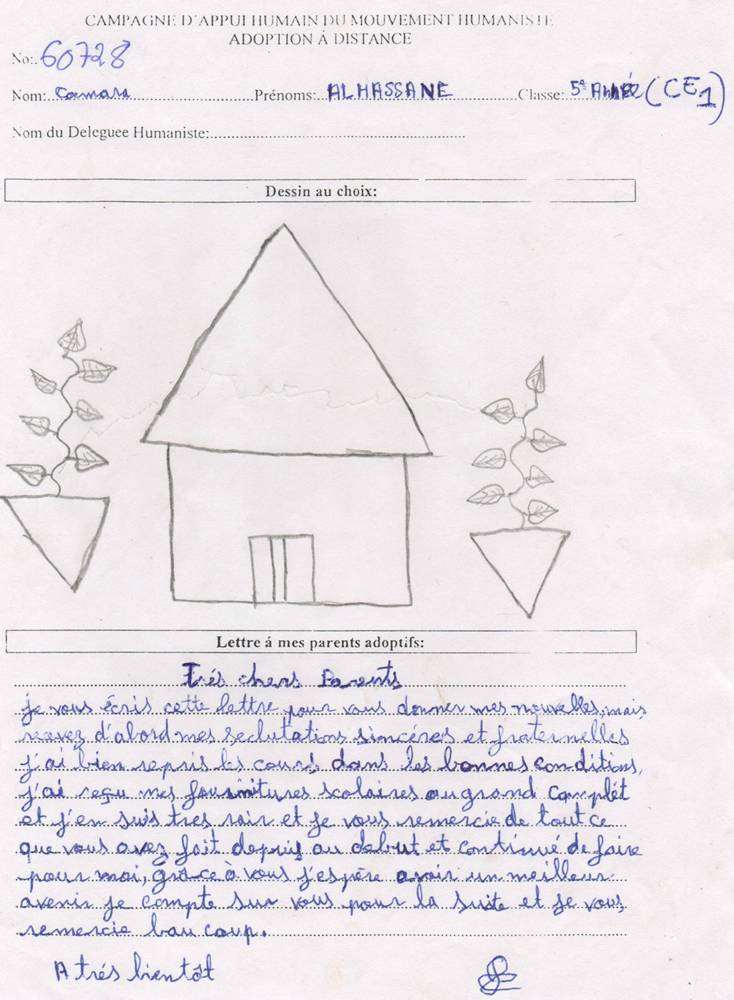 CAMPAGNE D'APPUI HUMAIN DU MOUVEMENT HUMANISTE
ADOPTION Á DISTANCE
No:. 60728
Nom: Camara Prénoms: ALHASSANE Classe: 5e ANNÉE (CE1)
Nom du Deleguee Humaniste:
Dessin au choix:
Lettre á mes parents adoptifs:
Trés chers Parents
je vous écris cette lettre pour vous donner mes nouvelles, mais
recevez d'abord mes saclutations sincéres et fraternelles
j'ai bien repris les cours dans les bonnes conditions,
j'ai reçu mes fournitures scolaires au grand complét
et j'en suis tres ravir et je vous remercie de tout ce
que vous avez fait depuis au debut et continué de faire
pour moi, grâce à vous j'espère avoir un meilleur
avenir je compte sur vous pour la suite et je vous
remercie bau coup.
A trés bientôt